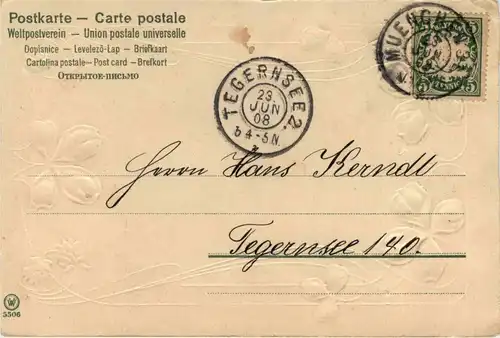 Postkarte – Carte postale
Weltpostverein – Union postale universelle
Dopisnice – Levelező-Lap – Briefkaart
Cartolina postale – Post card – Brefkort
Открытое-письмо
MUENCH
5 5
TEGERNSEE 2.
23
JUN
08
4-5N.
Herrn Hans Kerndl
Tegernsee 140.
5506